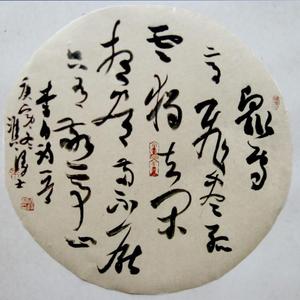 眾鳥
高飛盡孤
雲獨去閑
相看兩不厭
只有敬亭山
李白詩一首
庚寅冬